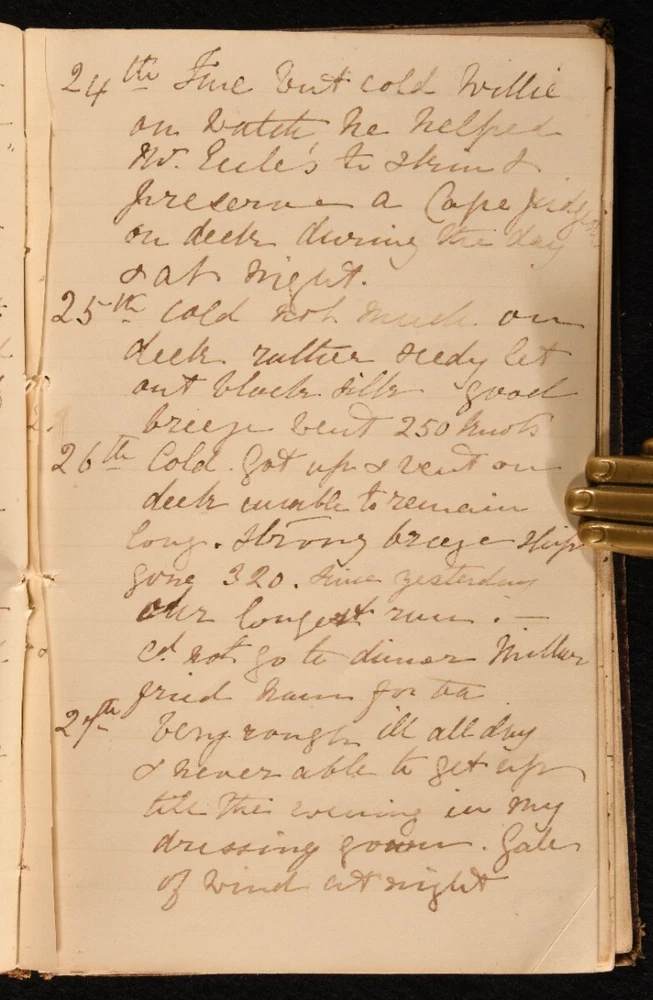 24th Fine but cold Willie
on watch he helped
Mr. Eccle's to skin &
preserve a Cape pidgeon
on deck during the day
& at night.
25th Cold not much on
deck rather seedy let
out black silk good
breeze went 250 knots
26th Cold. Got up & went on
deck unable to remain
long. Strong breeze ship
gone 320. since yesterday
our longest run. —
cd. not go to dinner
fried ham for tea
27th Very rough ill all day
& never able to get up
till the evening in my
dressing gown. Gale
of wind at night